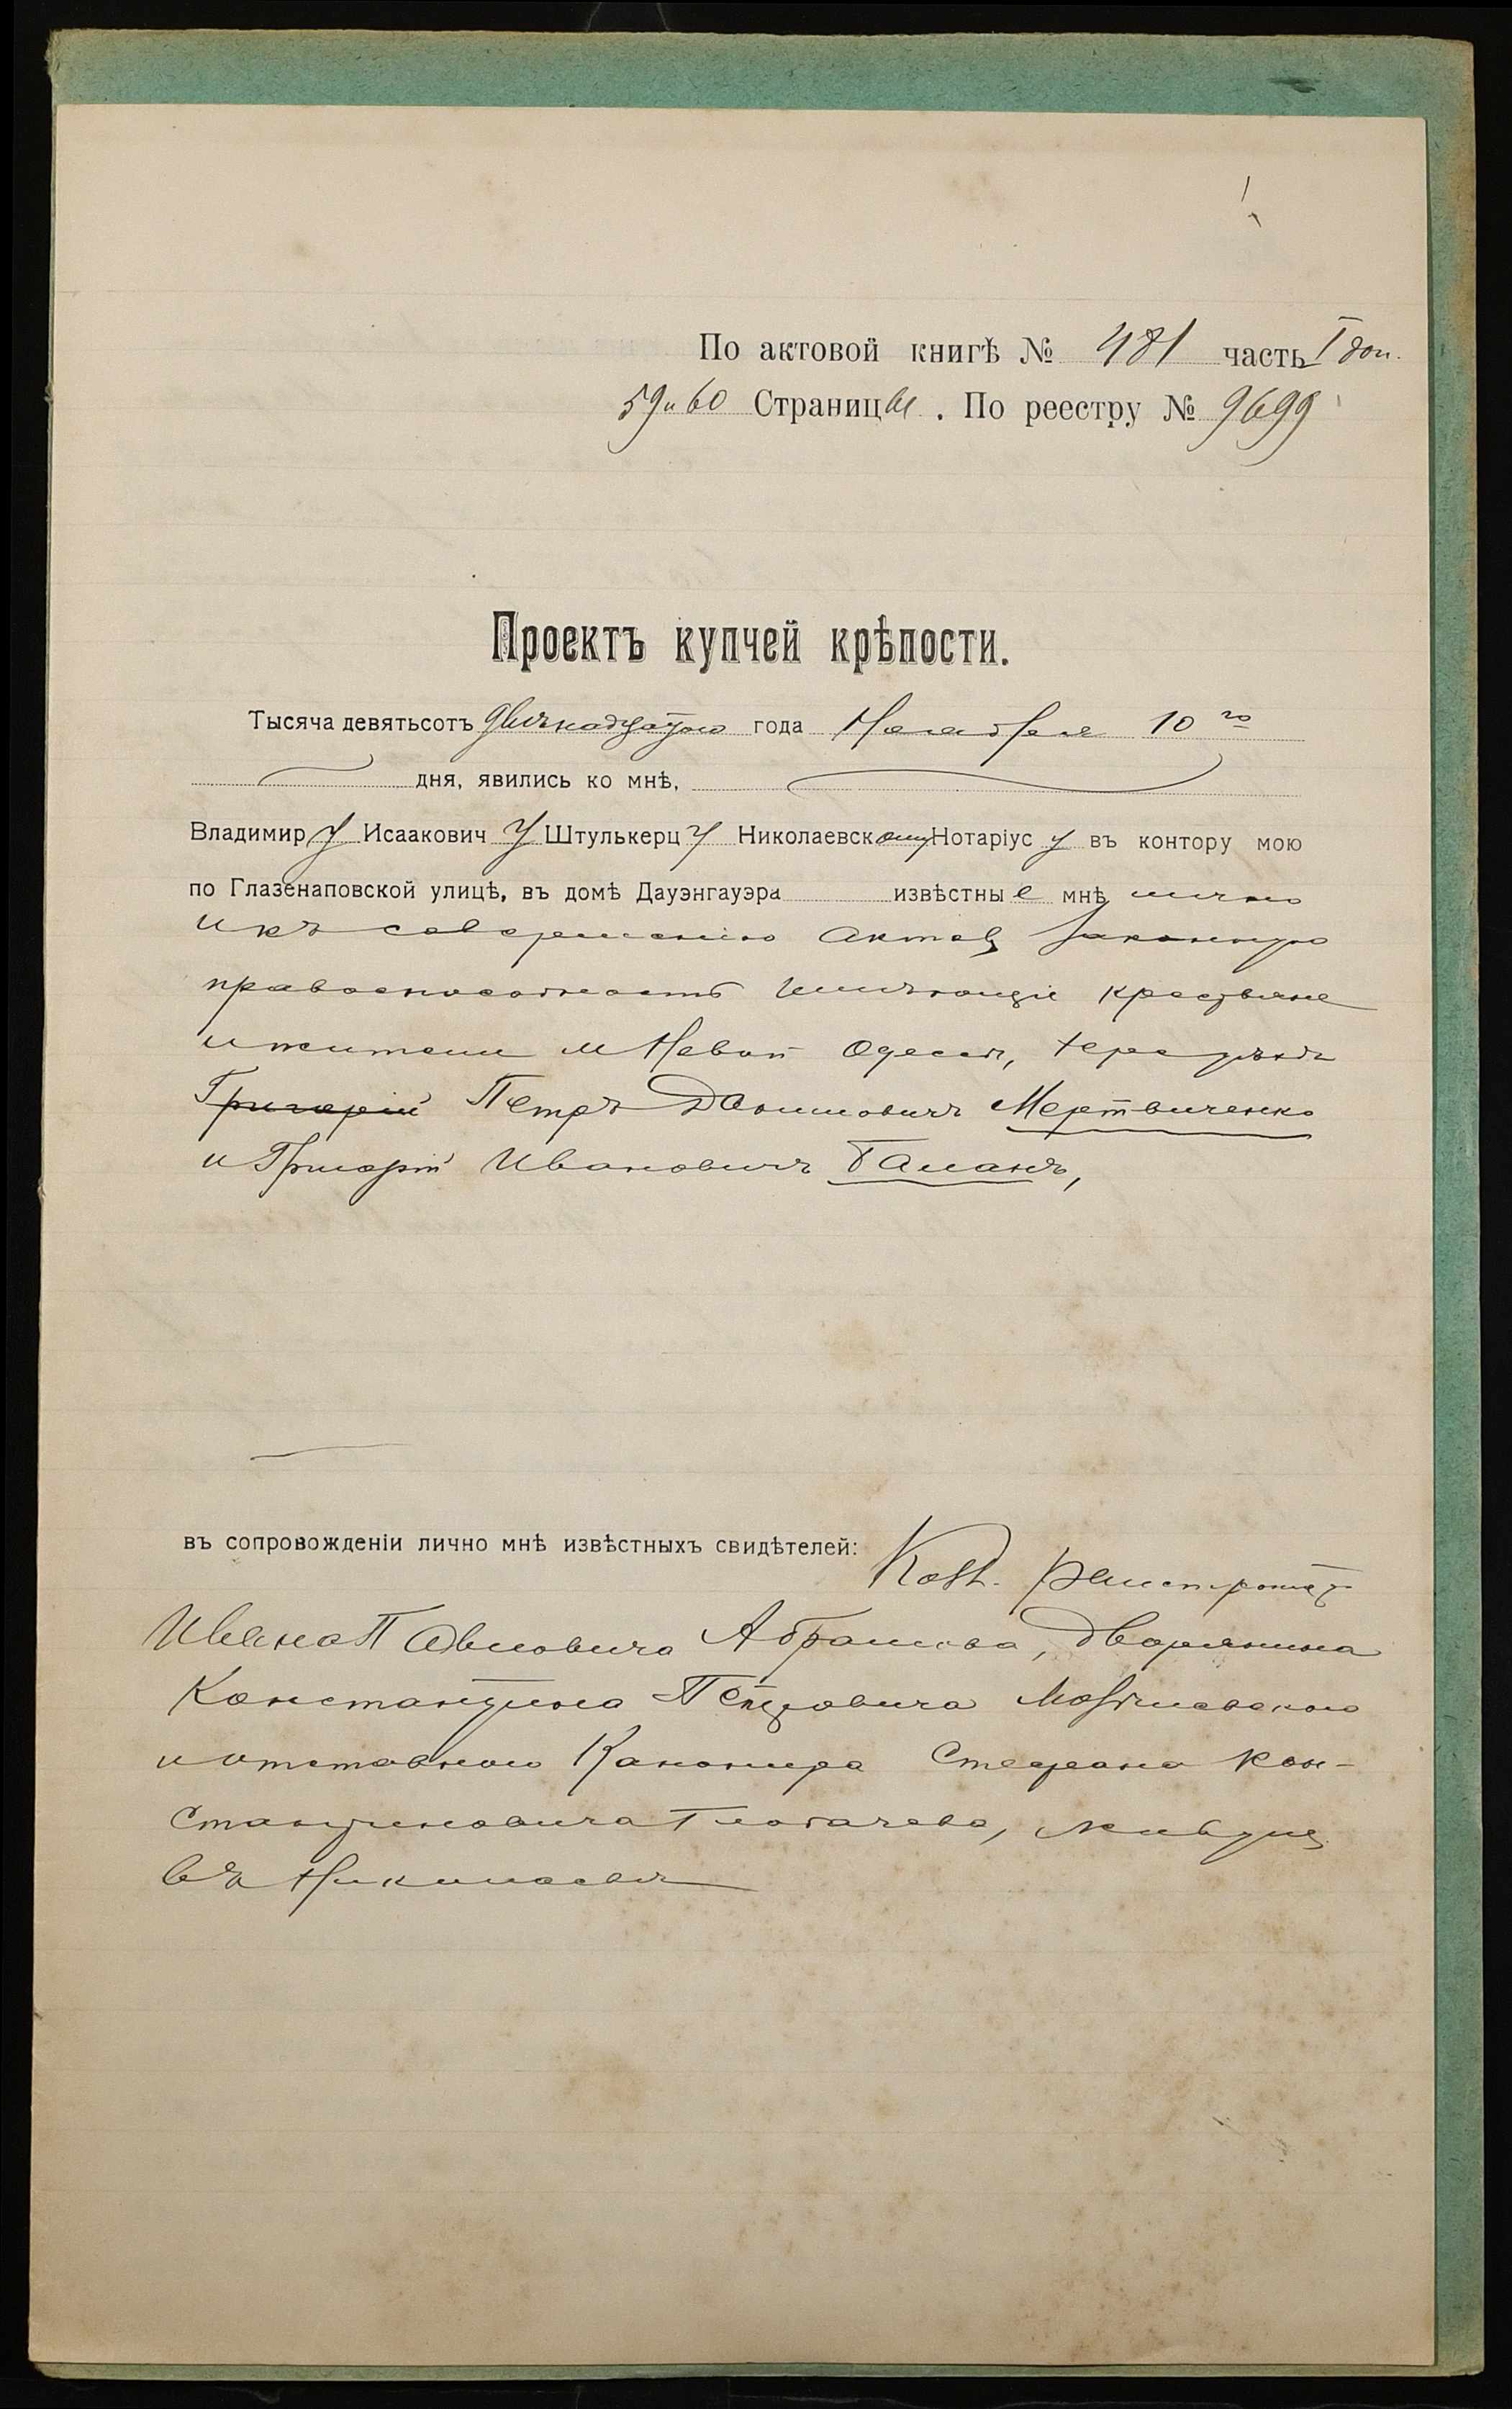 По актовой книгѣ № 481 часть I доп.
59 и 60 Страницы. По реестру № 9699
Проектъ купчей крѣпости.
Тысяча девятьсотъ двѣнадцатого года Ноября 10 го
дня, явились ко мнѣ,
Владимиру Исааковичу Штулькерцу Николаевскому Нотаріусу въ контору мою
по Глазенаповской улицѣ, въ домѣ Дауэнгауэра извѣстные мнѣ лично
и къ совершенію актовъ законную
правоспособность имѣющіе крестьяне
и жители м Новой Одессы, Херс уѣзда
Григорій Петръ Мертвиченко
и Григорій Ивановичъ
въ сопровожденіи лично мнѣ извѣстныхъ свидѣтелей: Колл. Регистрат
Ивана Павловича Абрамова, дворянина
Константина Петровича
и отставного Канонира Стефана Кон-
стантиновича живущ
въ Николаевѣ